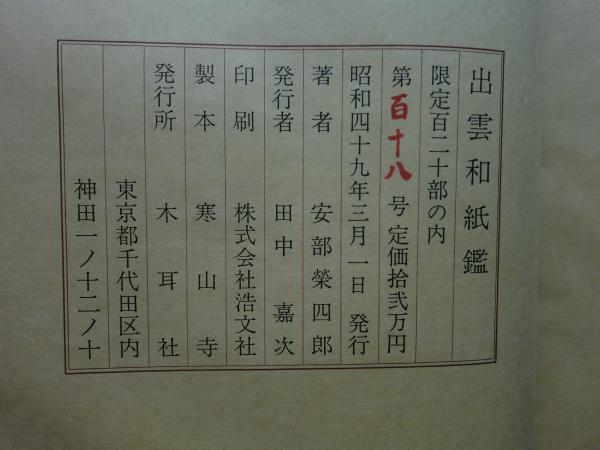 出雲和紙鑑
限定百二十部の内
第百十八号 定価拾弐万円
昭和四十九年三月一日 発行
著者 安部榮四郎
発行者 田中嘉次
印刷 株式会社浩文社
製本 寒山寺
発行所 木耳社
東京都千代田区内
神田一ノ十二ノ十